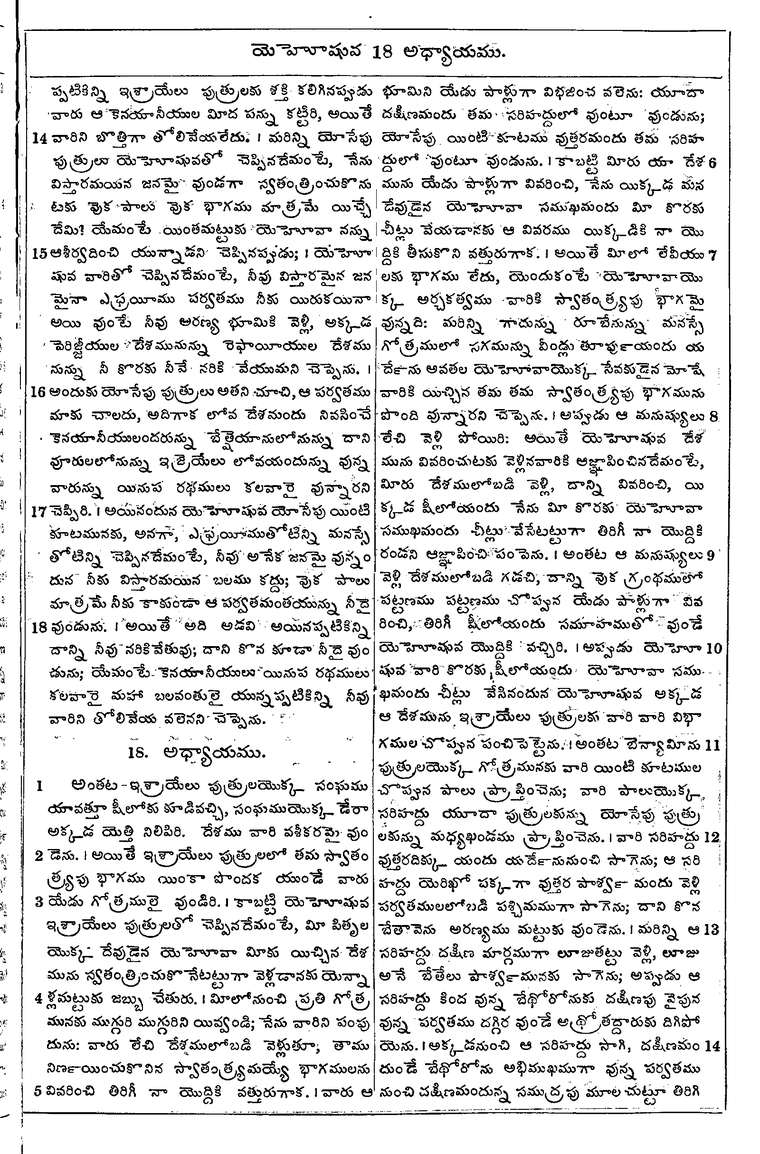 యెహోషువ 18 అధ్యాయము.
ప్పటికిన్ని ఇశ్రాయేలు పుత్రులకు శక్తి కలిగినప్పుడు
వారు ఆ కెనయానీయుల మీద పన్ను కట్టిరి, అయితే
14 వారిని బొత్తిగా తోలివేయలేదు. । మరిన్ని యోసేఫు
పుత్రులు యెహోషువతో చెప్పినదేమంటే, నేను
విస్తారమయిన జనమై వుండగా స్వతంత్రించుకొను
టకు వుక పాలు వుక భాగము మాత్రమే యిచ్చే
దేమి? యేమంటే యింతమట్టుకు యెహోవా నన్ను
15 ఆశీర్వదించి యున్నాడని చెప్పినప్పడు; । యెహో
షువ వారితో చెప్పినదేమంటే, నీవు విస్తారమైన జన
మైనా ఎఫ్రయీము పర్వతము నీకు యిరుకయినా
అయి వుంటే నీవు అరణ్య భూమికి వెళ్లి, అక్కడ
పెరిజ్జీయుల దేశమునున్ను రెఫాయీయుల దేశము
నున్ను నీ కొరకు నీవే నరికి వేయుమని చెప్పెను. ।
16 అందుకు యోసేఫు పుత్రులు అతని చూచి, ఆ పర్వతము
మాకు చాలదు, అదిగాక లోవ దేశమందు నివసించే
కెనయానీయులందరున్ను బేత్షెయానులోనున్ను దాని
వూరులలోనున్ను ఇజ్రెయేలు లోవయందున్ను వున్న
వారున్ను యినుప రథములు కలవారై వున్నారని
17 చెప్పిరి. । అయినందున యెహోషువ యోసేఫు యింటి
కూటమునకు, అనగా, ఎఫ్రయీముతోటిన్ని మనస్సే
తోటిన్ని చెప్పినదేమంటే, నీవు అనేక జనమై వున్నం
దున నీకు విస్తారమయిన బలము కద్దు; వుక పాలు
మాత్రమే నీకు కాకుండా ఆ పర్వతమంతయున్ను నీదై
18 వుండును. । అయితే అది అడవి అయినప్పటికిన్ని
దాన్ని నీవు నరికివేతువు; దాని కొన కూడా నీదై వుం
డును; యేమంటే కెనయానీయులు యినుప రథములు
కలవారై మహా బలవంతులై యున్నప్పటికిన్ని నీవు
వారిని తోలివేయ వలెనని చెప్పెను.
18. అధ్యాయము.
1 అంతట ఇశ్రాయేలు పుత్రులయొక్క సంఘము
యావత్తూ షీలోకు కూడివచ్చి, సంఘముయొక్క డేరా
అక్కడ యెత్తి నిలిపిరి. దేశము వారి వశీకరమై వుం
2 డెను. । అయితే ఇశ్రాయేలు పుత్రులలో తమ స్వాతం
త్ర్యపు భాగము యింకా పొందక యుండే వారు
3 యేడు గోత్రములై వుండిరి. । కాబట్టి యెహోషువ
ఇశ్రాయేలు పుత్రులతో చెప్పినదేమంటే, మీ పితృల
యొక్క దేవుడైన యెహోవా మీకు యిచ్చిన దేశ
మును స్వతంత్రించుకొనేటట్టుగా వెళ్లడానకు యెన్నా
4 ళ్లమట్టుకు జబ్బు చేతురు. । మీలోనుంచి ప్రతి గోత్ర
మునకు ముగ్గురి ముగ్గురిని యివ్వండి; నేను వారిని పంపు
దును: వారు లేచి దేశములోబడి వెళ్లుతూ; తాము
నిర్ణయించుకొనిన స్వాతంత్ర్యమయ్యే భాగములను
5 వివరించి తిరిగీ నా యొద్దికి వత్తురుగాక. । వారు ఆ
భూమిని యేడు పాళ్లుగా విభజించ వలెను: యూదా
దక్షిణమందు తమ సరిహద్దులో వుంటూ వుండును;
యోసేఫు యింటి కూటము వుత్తరమందు తమ సరిహ
ద్దులో వుంటూ వుండును. । కాబట్టి మీరు యా దేశ 6
మును యేడు పాళ్లుగా వివరించి, నేను యిక్కడ మన
దేవుడైన యెహోవా సముఖమందు మీ కొరకు
చీట్లు వేయడానకు ఆ వివరము యిక్కడికి నా యొ
ద్దికి తీసుకొని వత్తురుగాక. । అయితే మీలో లేవీయు 7
లకు భాగము లేదు, యెందుకంటే యెహోవాయొ
క్క అర్చకత్వము వారికి స్వాతంత్ర్యపు భాగమై
వున్నది: మరిన్ని గాదున్ను రూబేనున్ను మనస్సే
గోత్రములో సగమున్ను వీండ్లు తూర్పుయందు య
ర్దేను అవతల యెహోవాయొక్క సేవకుడైన మోషే
వారికి యిచ్చిన తమ తమ స్వాతంత్ర్యపు భాగమును
పొంది వున్నారని చెప్పెను. । అప్పుడు ఆ మనుష్యులు 8
లేచి వెళ్లి పోయిరి: అయితే యెహోషువ దేశ
మును వివరించుటకు వెళ్లినవారికి ఆజ్ఞాపించినదేమంటే,
మీరు దేశములోబడి వెళ్లి, దాన్ని వివరించి, యి
క్కడ షీలోయందు నేను మీ కొరకు యెహోవా
సముఖమందు చీట్లు వేసేటట్టుగా తిరిగీ నా యొద్దికి
రండని ఆజ్ఞాపించి పంపెను. । అంతట ఆ మనుష్యులు 9
వెళ్లి దేశములోబడి గడచి, దాన్ని వుక గ్రంథములో
పట్టణము పట్టణము చొప్పున యేడు పాళ్లుగా వివ
రించి, తిరిగీ షీలోయందు సమూహముతో వుండే
యెహోషువ యొద్దికి వచ్చిరి. । అప్పుడు యెహో 10
షువ వారి కొరకు షీలోయందు యెహోవా సము
ఖమందు చీట్లు వేసినందున యెహోషువ అక్కడ
ఆ దేశమును ఇశ్రాయేలు పుత్రులకు వారి వారి విభా
గముల చొప్పున పంచిపెట్టెను. । అంతట బెన్యామీను 11
పుత్రులయొక్క గోత్రమునకు వారి యింటి కూటముల
చొప్పున పాలు ప్రాప్తించెను; వారి పాలుయొక్క
సరిహద్దు యూదా పుత్రులకున్ను యోసేఫు పుత్రు
లకున్ను మధ్యఖండము ప్రాప్తించెను. । వారి సరిహద్దు 12
వుత్తరదిక్కు యందు యర్దేనునుంచి సాగెను; ఆ సరి
హద్దు యెరిఖో పక్కగా వుత్తర పార్శ్వ మందు వెళ్లి
పర్వతములలోబడి పశ్చిమముగా సాగెను; దాని కొన
బేతావెను అరణ్యము మట్టుకు వుండెను. । మరిన్ని ఆ 13
సరిహద్దు దక్షిణ మార్గముగా లూజుతట్టు వెళ్లి, లూజు
అనే బేతేలు పార్శ్వమునకు సాగెను; అప్పుడు ఆ
సరిహద్దు కింద వున్న బేథోరోనుకు దక్షిణపు వైపున
వున్న పర్వతము దగ్గిర వుండే అథ్రోతద్దారుకు దిగిపో
యెను. । అక్కడనుంచి ఆ సరిహద్దు సాగి, దక్షిణమం 14
దుండే బేథోరోను అభిముఖముగా వున్న పర్వతము
నుంచి దక్షిణమందున్న సముద్రపు మూల చుట్టూ తిరిగి